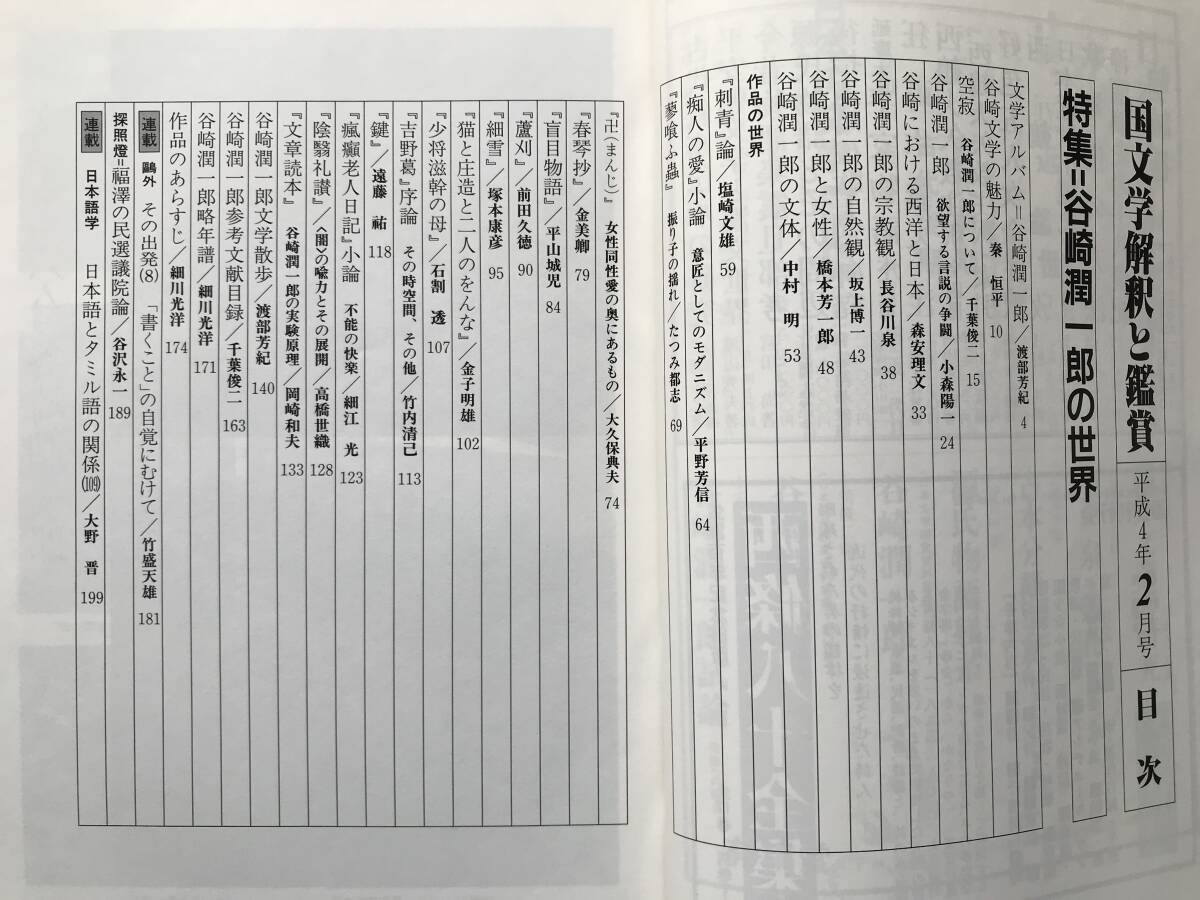 国文学解釈と鑑賞 平成4年2月号 目次
特集=谷崎潤一郎の世界
文学アルバム=谷崎潤一郎/渡部芳紀 4
谷崎文学の魅力/秦 恒平 10
空寂 谷崎潤一郎について/千葉俊二 15
谷崎潤一郎 欲望する言説の争闘/小森陽一 24
谷崎における西洋と日本/森安理文 33
谷崎潤一郎の宗教観/長谷川泉 38
谷崎潤一郎の自然観/坂上博一 43
谷崎潤一郎と女性/橋本芳一郎 48
谷崎潤一郎の文体/中村 明 53
作品の世界
『刺青』論/塩崎文雄 59
『痴人の愛』小論 意匠としてのモダニズム/平野芳信 64
『蓼喰ふ蟲』 振り子の揺れ/たつみ都志 69
『卍(まんじ)』 女性同性愛の奥にあるもの/大久保典夫 74
『春琴抄』/金美卿 79
『盲目物語』/平山城児 84
『蘆刈』/前田久徳 90
『細雪』/塚本康彦 95
『猫と庄造と二人のをんな』/金子明雄 102
『少将滋幹の母』/石割 透 107
『吉野葛』序論 その時空間、その他/竹内清己 113
『鍵』/遠藤 祐 118
『瘋癲老人日記』小論 不能の快楽/細江 光 123
『陰翳礼讃』 〈闇〉の喩力とその展開/高橋世織 128
『文章読本』 谷崎潤一郎の実験原理/岡崎和夫 133
谷崎潤一郎文学散歩/渡部芳紀 140
谷崎潤一郎参考文献目録/千葉俊二 163
谷崎潤一郎略年譜/細川光洋 171
作品のあらすじ/細川光洋 174
連載 鷗外 その出発(8) 「書くこと」の自覚にむけて/竹盛天雄 181
探照燈=福澤の民選議院論/谷沢永一 189
連載 日本語学 日本語とタミル語の関係(109)/大野 晋 199